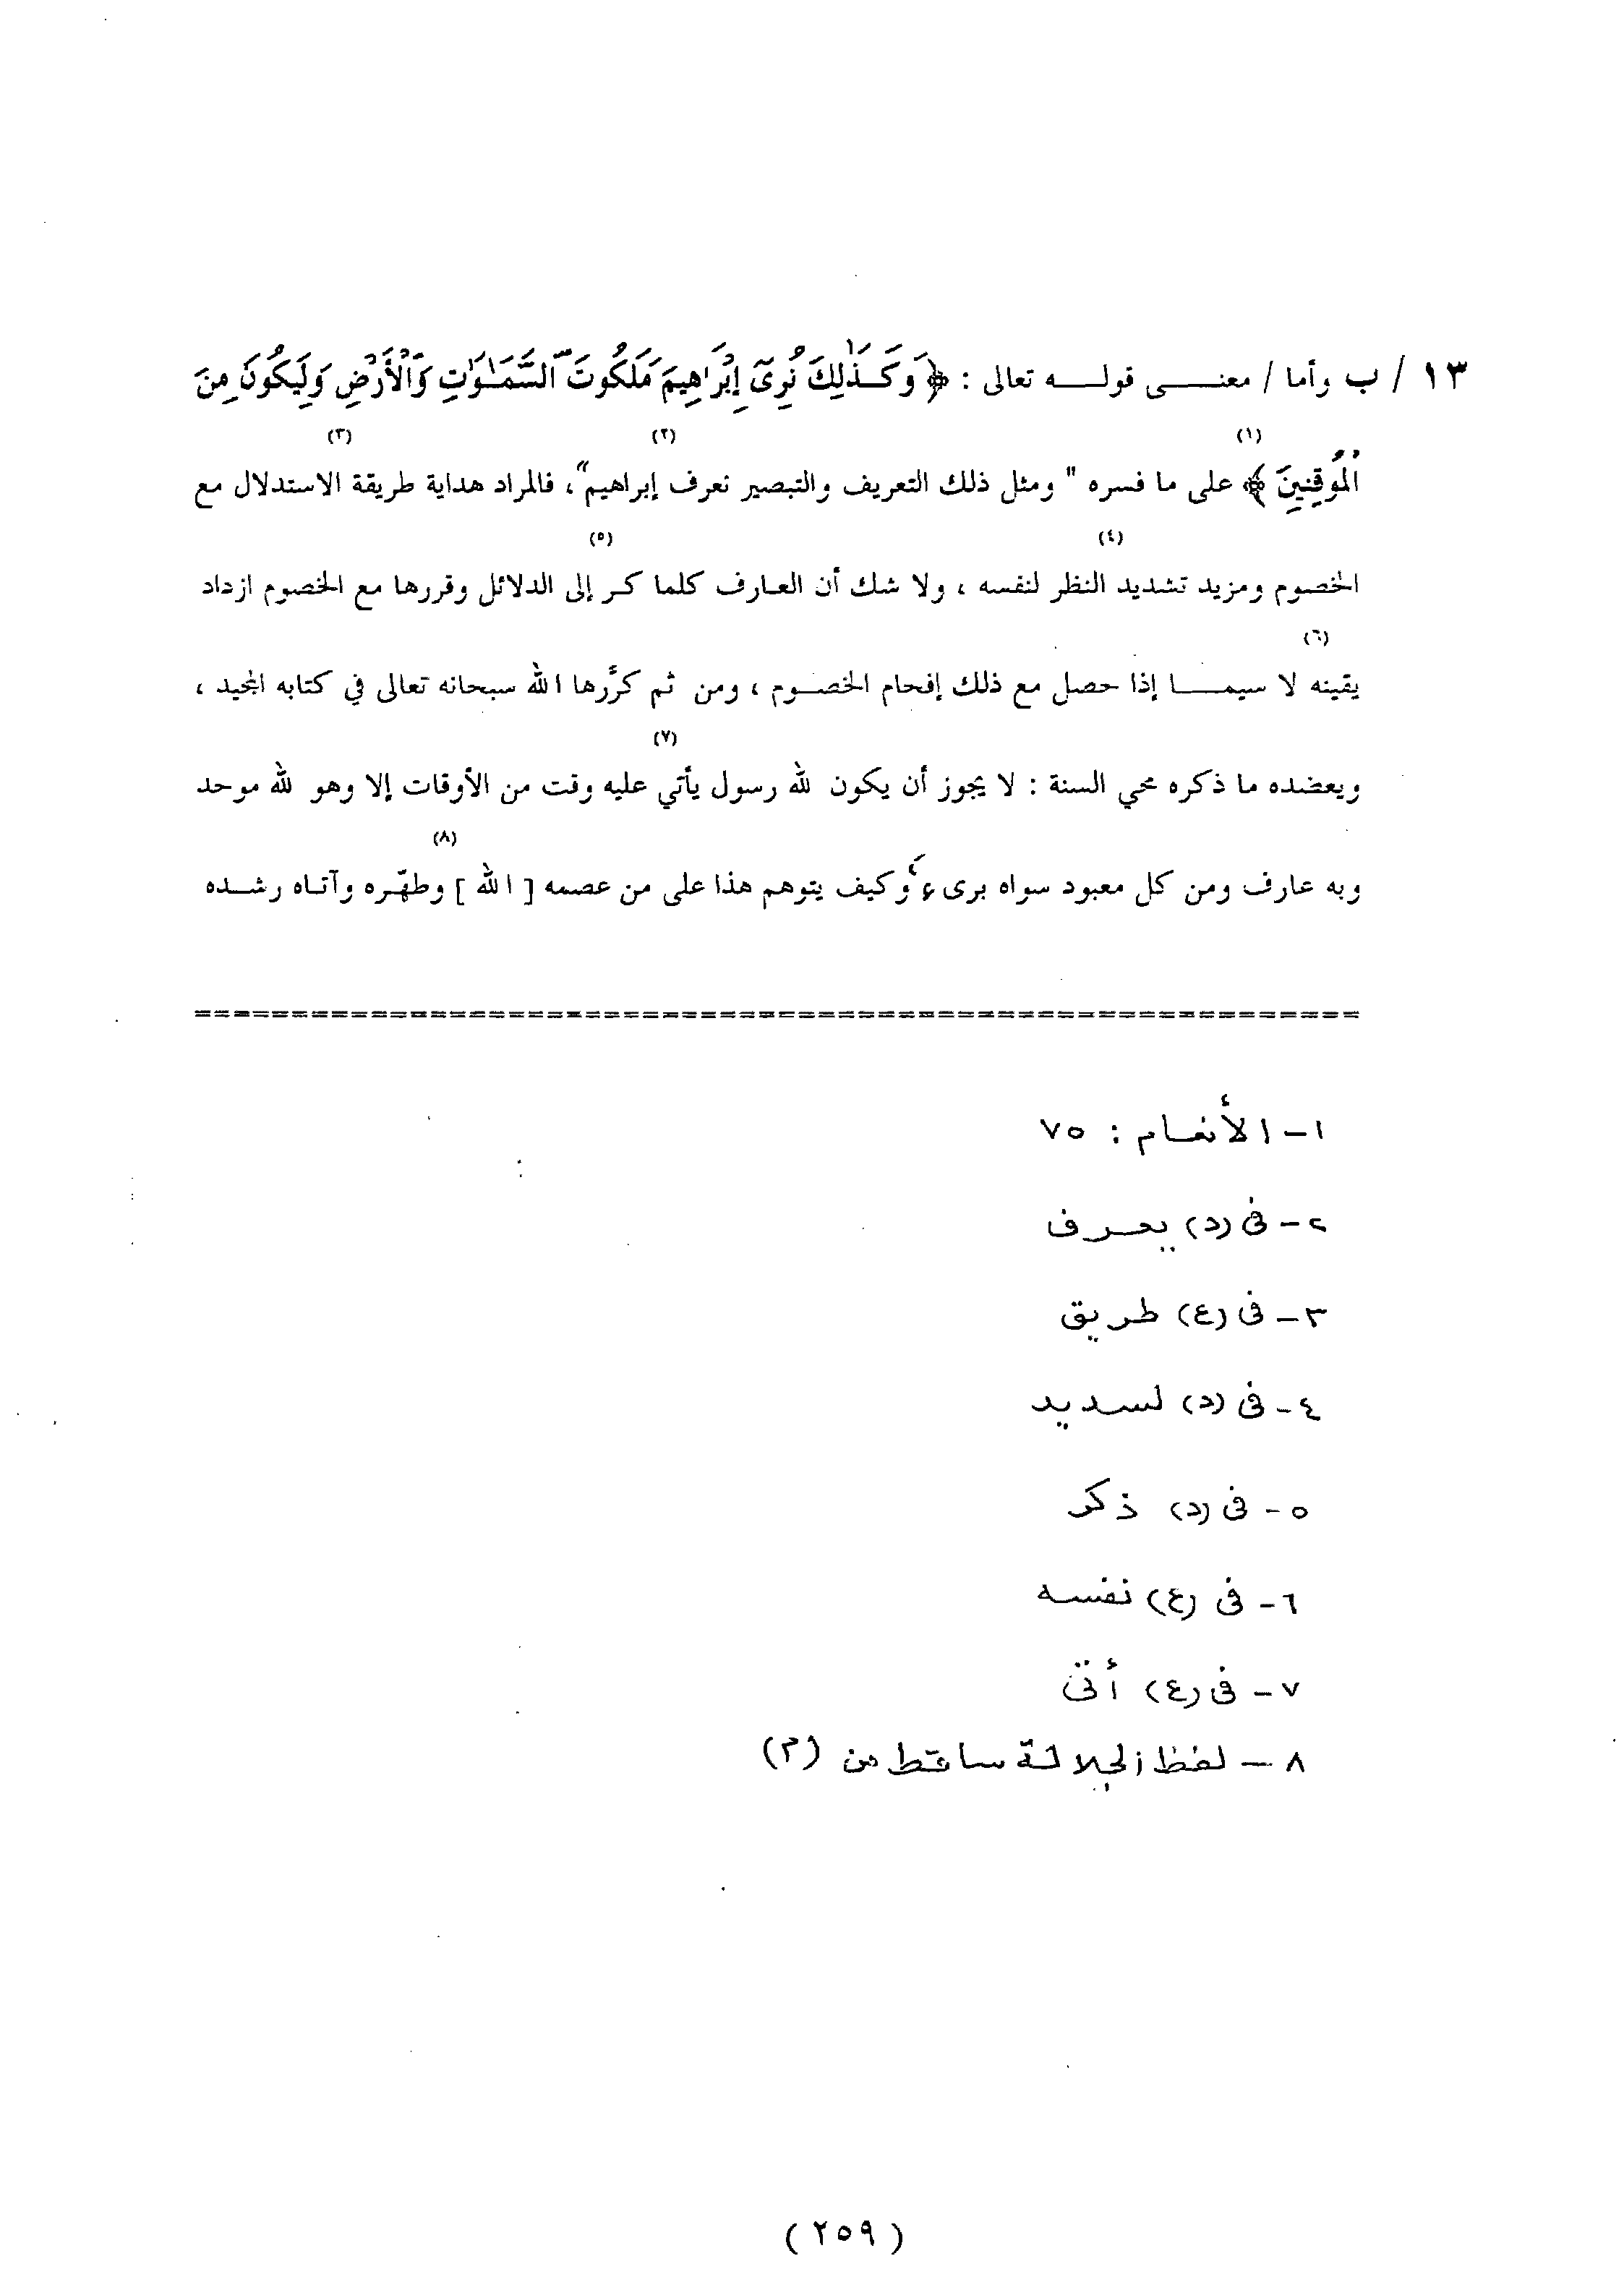 ١٣ / ب وأما / معنى قوله تعالى : ﴿ وَكَذَٰلِكَ نُرِىٓ إِبْرَاهِيمَ مَلَكُوتَ ٱلسَّمَـٰوَٰتِ وَٱلْأَرْضِ وَلِيَكُونَ مِنَ
(١) (٢) (٣)
ٱلْمُوقِنِينَ ﴾ على ما فسره " ومثل ذلك التعريف والتبصير نعرف إبراهيم"، فالمراد هداية طريقة الاستدلال مع
(٤) (٥)
الخصوم ومزيد تشديد النظر لنفسه ، ولا شك أن العارف كلما كر إلى الدلائل وقررها مع الخصوم ازداد
(٦)
يقينه لا سيما إذا حصل مع ذلك إفحام الخصوم ، ومن ثم كرَّرها الله سبحانه تعالى في كتابه المجيد ،
(٧)
ويعضده ما ذكره محي السنة : لا يجوز أن يكون لله رسول يأتي عليه وقت من الأوقات إلا وهو لله موحد
(٨)
وبه عارف ومن كل معبود سواه برىء وكيف يتوهم هذا على من عصمه [ الله ] وطهّره وآتاه رشده
١ - الأنعام : ٧٥
٢ - فى (د) يعرف
٣ - فى (ع) طريق
٤ - فى (د) لسديد
٥ - فى (د) ذكر
٦ - فى (ع) نفسه
٧ - فى (ع) أتى
٨ - لفظ الجلالة ساقط من (م)
( ٢٥٩ )